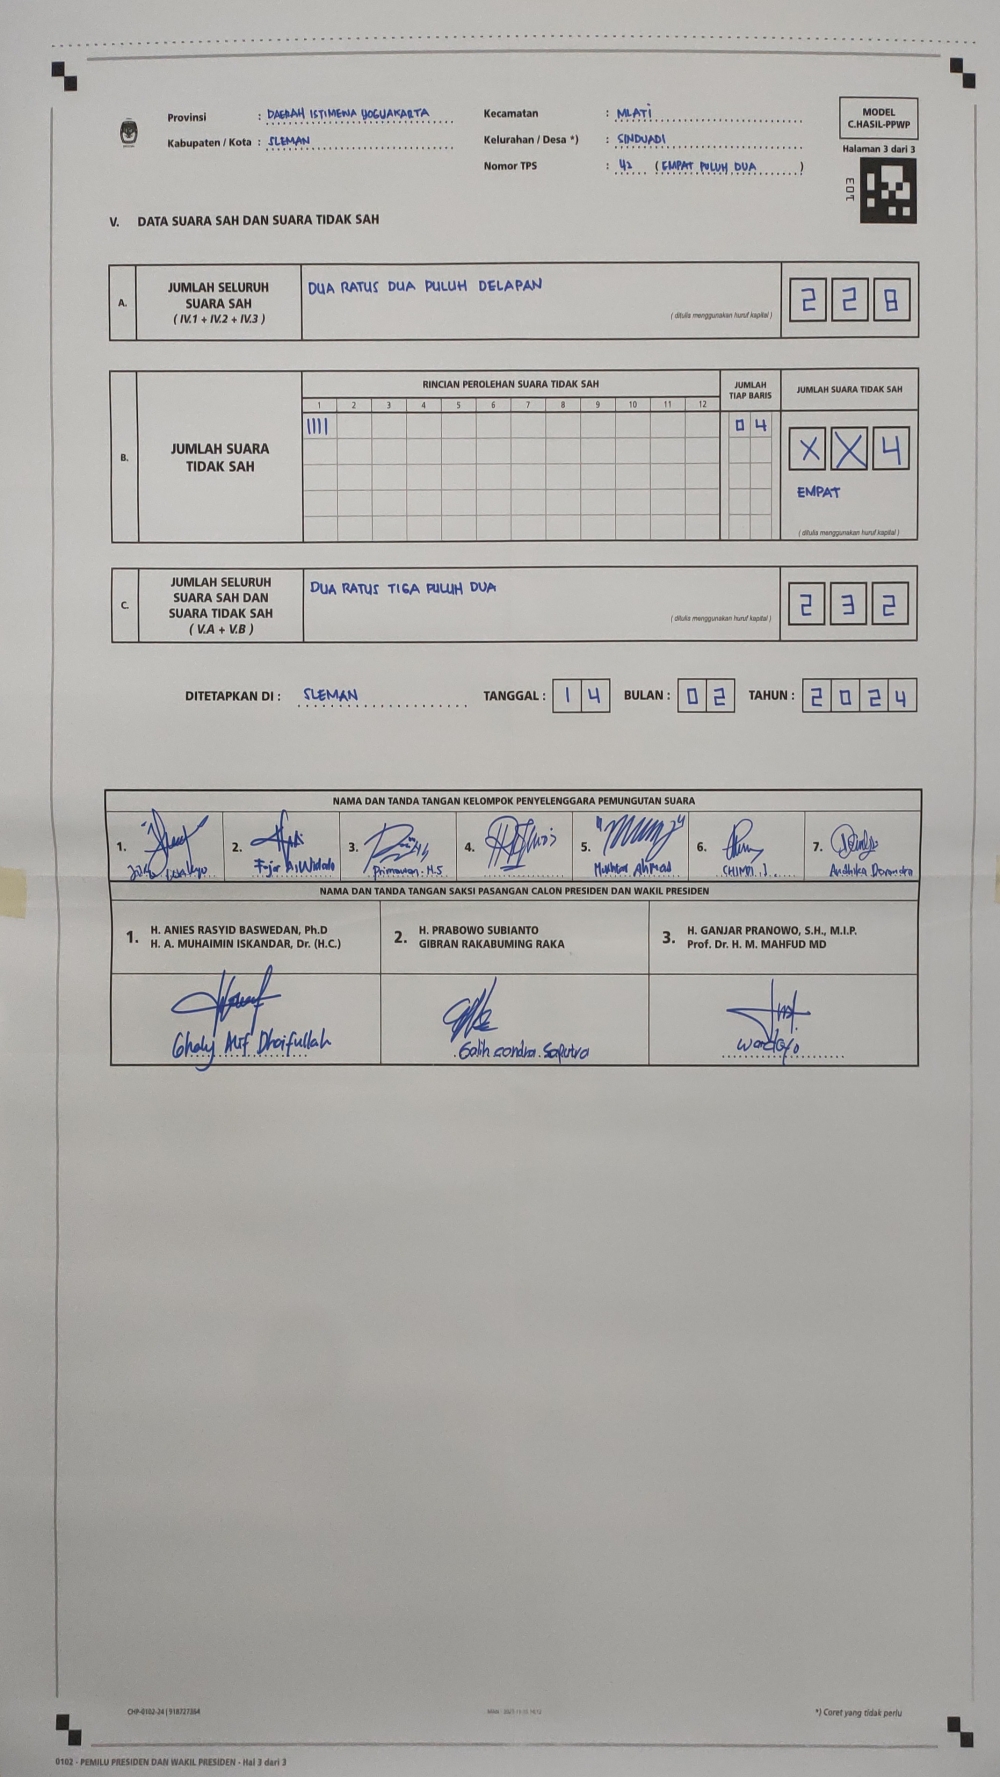 Provinsi : DAERAH ISTIMEWA YOGYAKARTA
Kabupaten / Kota : SLEMAN
Kecamatan : MLATI
Kelurahan / Desa *) : SINDUADI
Nomor TPS : 42 (EMPAT PULUH DUA)
MODEL
C.HASIL-PPWP
Halaman 3 dari 3
V. DATA SUARA SAH DAN SUARA TIDAK SAH
A. JUMLAH SELURUH
SUARA SAH
( IV.1 + IV.2 + IV.3 )
DUA RATUS DUA PULUH DELAPAN
( ditulis menggunakan huruf kapital )
2 2 8
B. JUMLAH SUARA
TIDAK SAH
RINCIAN PEROLEHAN SUARA TIDAK SAH
1 2 3 4 5 6 7 8 9 10 11 12
JUMLAH
TIAP BARIS
JUMLAH SUARA TIDAK SAH
IIII
0 4
X X 4
EMPAT
( ditulis menggunakan huruf kapital )
C. JUMLAH SELURUH
SUARA SAH DAN
SUARA TIDAK SAH
( V.A + V.B )
DUA RATUS TIGA PULUH DUA
( ditulis menggunakan huruf kapital )
2 3 2
DITETAPKAN DI : SLEMAN TANGGAL : 1 4 BULAN : 0 2 TAHUN : 2 0 2 4
NAMA DAN TANDA TANGAN KELOMPOK PENYELENGGARA PEMUNGUTAN SUARA
1. 2. 3. 4. 5. 6. 7.
Fajar A. Widodo
Primawan. H.S
Mukhtar Ahmad
NAMA DAN TANDA TANGAN SAKSI PASANGAN CALON PRESIDEN DAN WAKIL PRESIDEN
1. H. ANIES RASYID BASWEDAN, Ph.D
H. A. MUHAIMIN ISKANDAR, Dr. (H.C.)
2. H. PRABOWO SUBIANTO
GIBRAN RAKABUMING RAKA
3. H. GANJAR PRANOWO, S.H., M.I.P.
Prof. Dr. H. M. MAHFUD MD
Ghaly Alif Dhaifullah
Galih Candra Saputra
Wardoyo
CHP-0102-24 | 918727364
*) Coret yang tidak perlu
0102 - PEMILU PRESIDEN DAN WAKIL PRESIDEN - Hal 3 dari 3